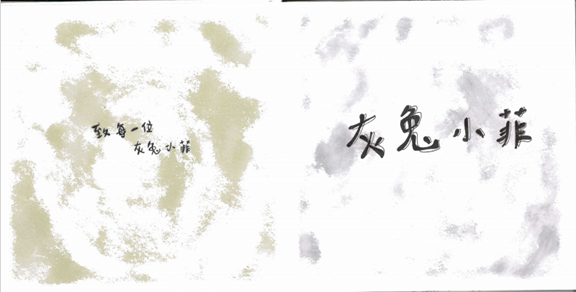 致每一位
灰兔小菲
灰兔小菲